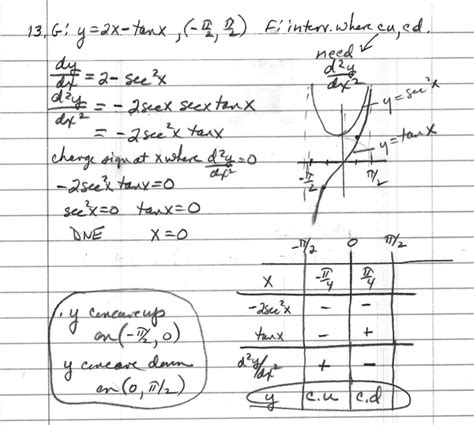 13. G: y = 2x - tanx, (-π/2, π/2) F: interv. where cu, cd.
need d²y/dx²
dy/dx = 2 - sec²x
d²y/dx² = -2secx secx tanx
= -2sec²x tanx
y = sec²x
y = tanx
-π/2 π/2
change sign at x where d²y/dx² = 0
-2sec²x tanx = 0
sec²x = 0 tanx = 0
DNE x = 0
-π/2 0 π/2
x -π/4 π/4
-2sec²x - -
tanx - +
d²y/dx² + -
y c.u c.d
∴ y concave up
on (-π/2, 0)
y concave down
on (0, π/2)